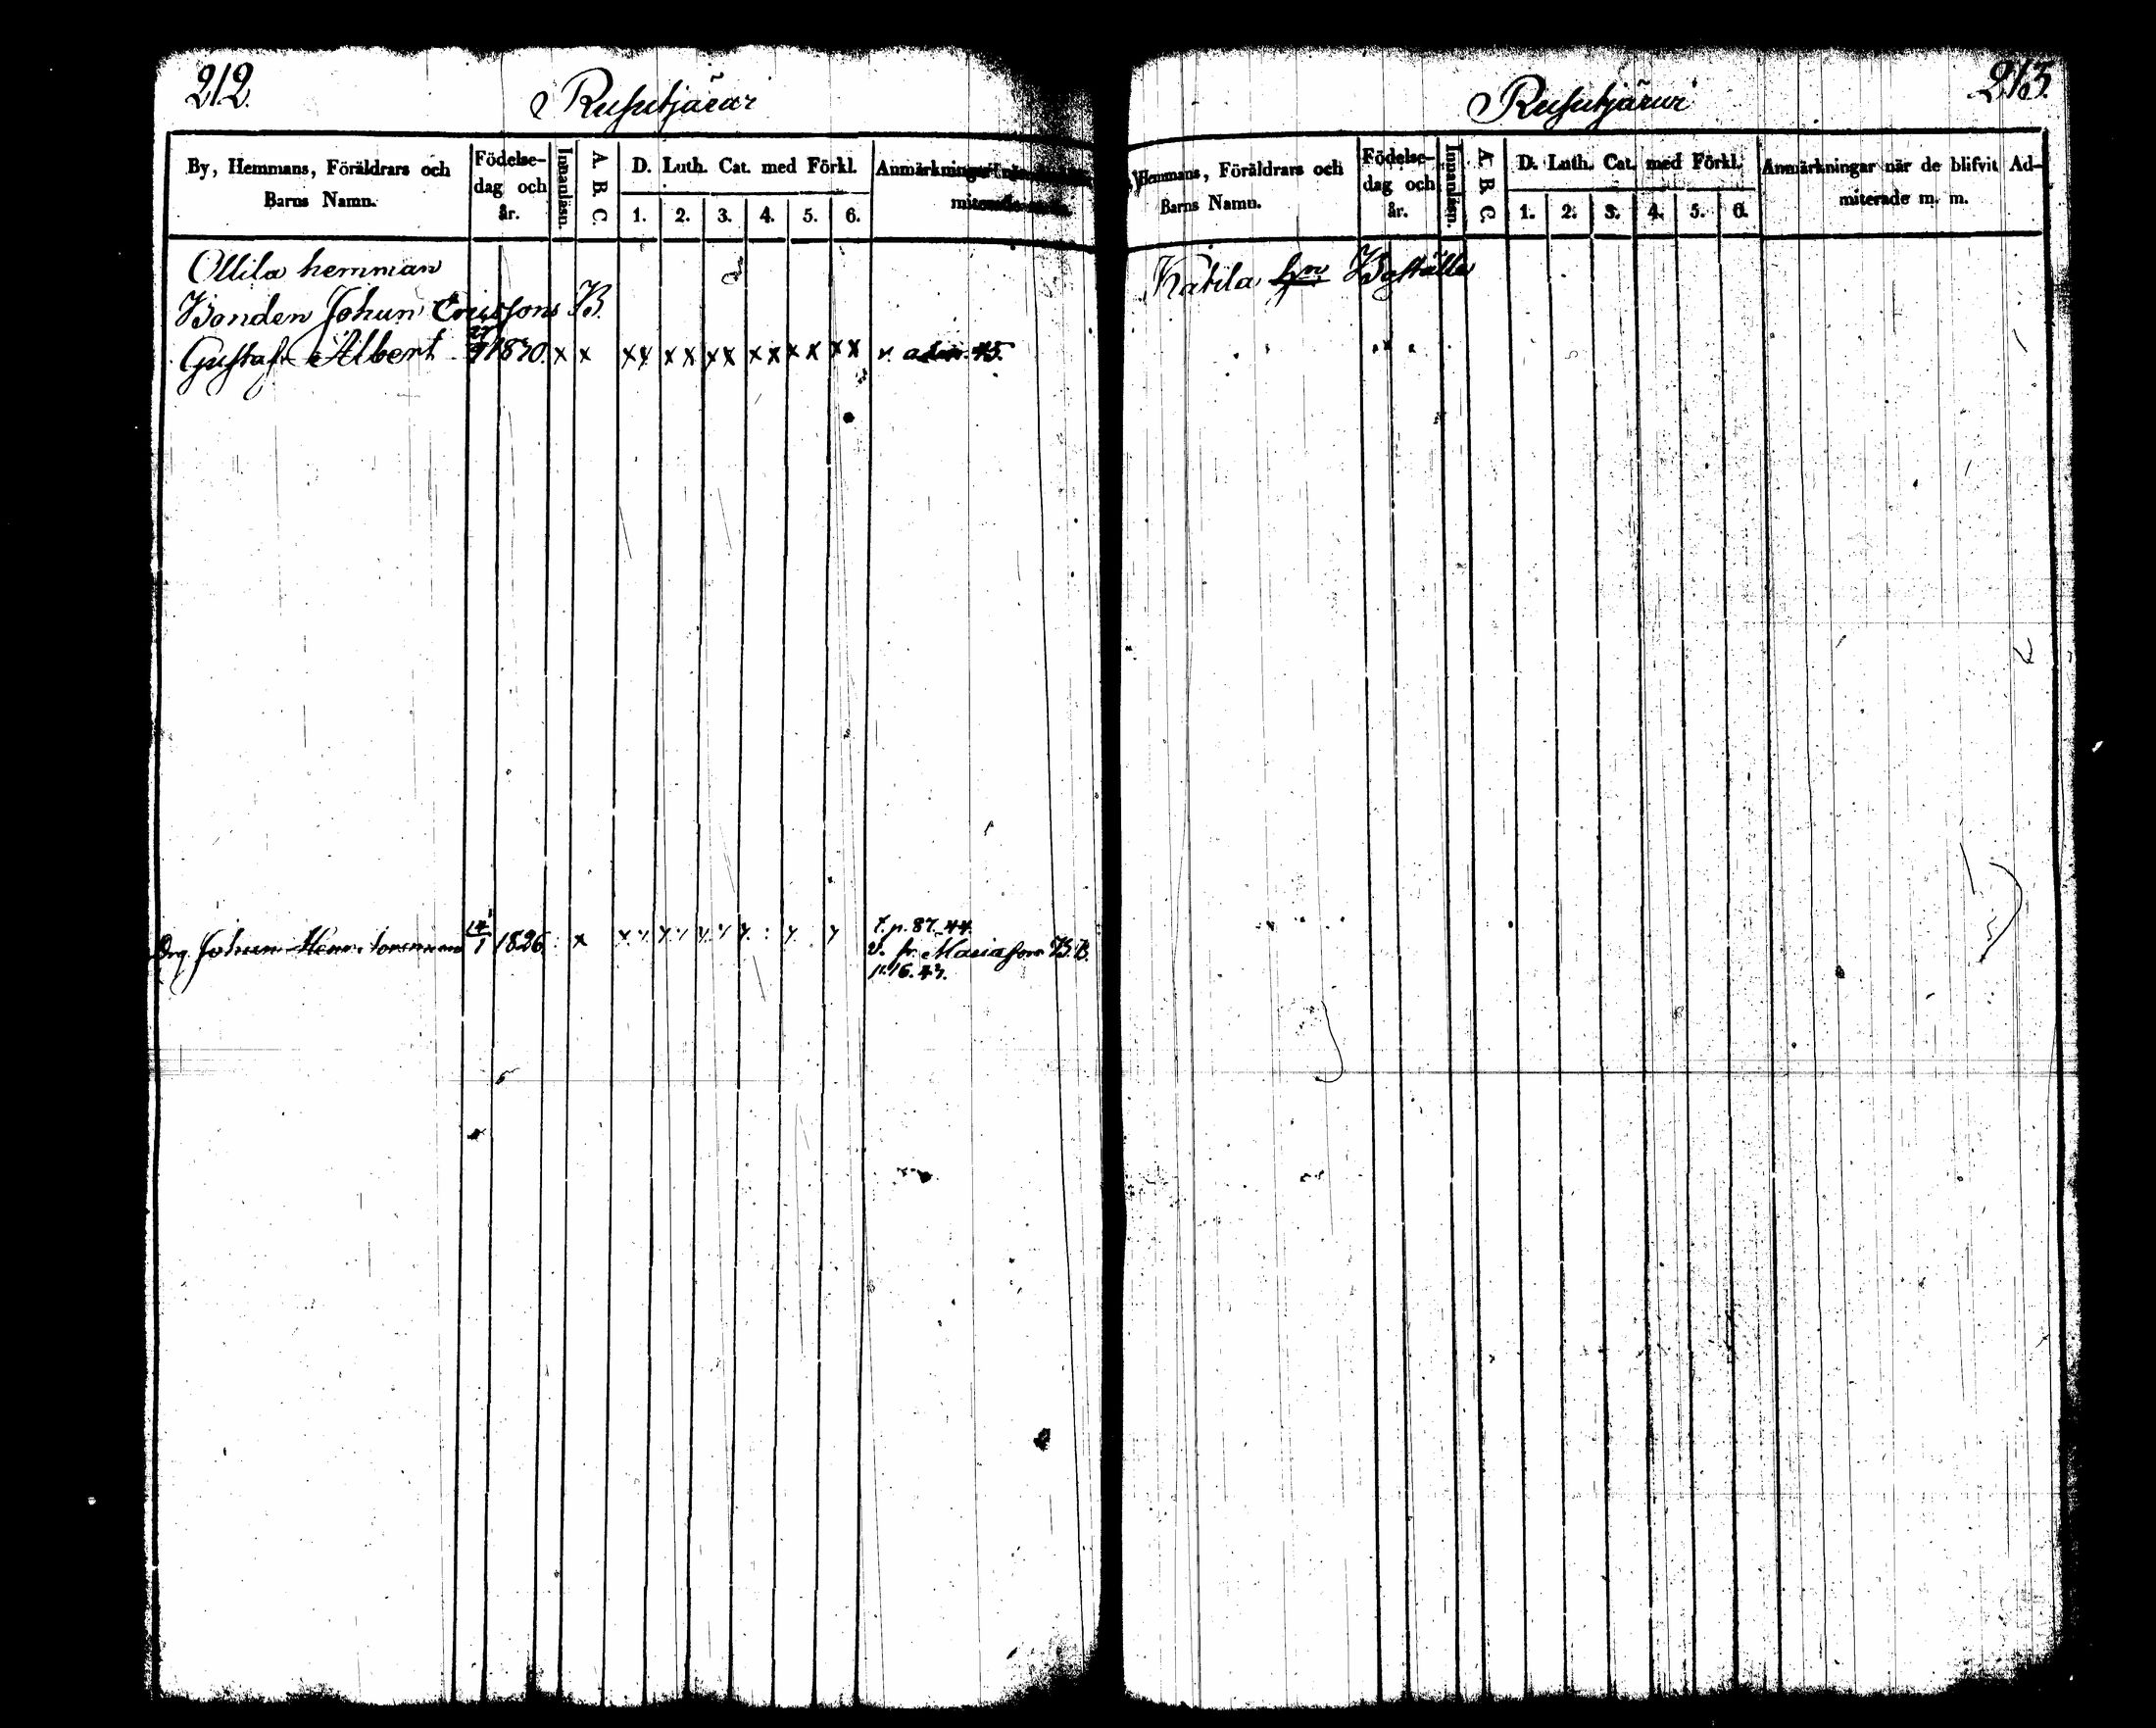 212.
Rusutjärvi
By, Hemmans, Föräldrars och
Barns Namn.
Födelse-
dag och
år.
Innanläsn.
A B C.
D. Luth. Cat. med Förkl.
1. 2. 3. 4. 5. 6.
Anmärkningar
miterade m. m.
Ollila hemman
Bonden Johan Ericssons B.
Gustaf Albert 1830. x x xx xx xx xx xx xx v. adm. 45.
Drg. Johan Henr. 14/1 1826 x
t. p. 87. 44.
v. fr. Mariafors B.B.
p. 16. 43.
213.
Rusutjärvi
Hemmans, Föräldrars och
Barns Namn.
Födelse-
dag och
år.
Innanläsn.
A B C
D. Luth. Cat. med Förkl.
1. 2. 3. 4. 5. 6.
Anmärkningar när de blifvit Ad-
miterade m. m.
Katila hn Boställe